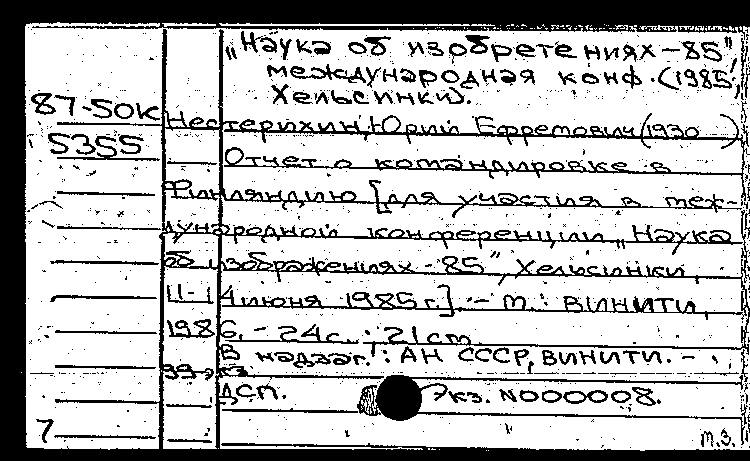 „Наука об изобретениях-85",
международная конф. (1985;
Хельсинки).
87-50К
5355
Нестерихин, Юрий Ефремович (1930 )
Отчет о командировке в
Финляндию [для участия в меж-
дународной конференции „Наука
об изображениях-85", Хельсинки,
11-14 июня 1985 г.]. - М.: ВИНИТИ,
1986. - 24с.; 21см.
В надзаг.: АН СССР, ВИНИТИ. -
99 экз.
ДСП. Экз. N000008.
7
м.з.